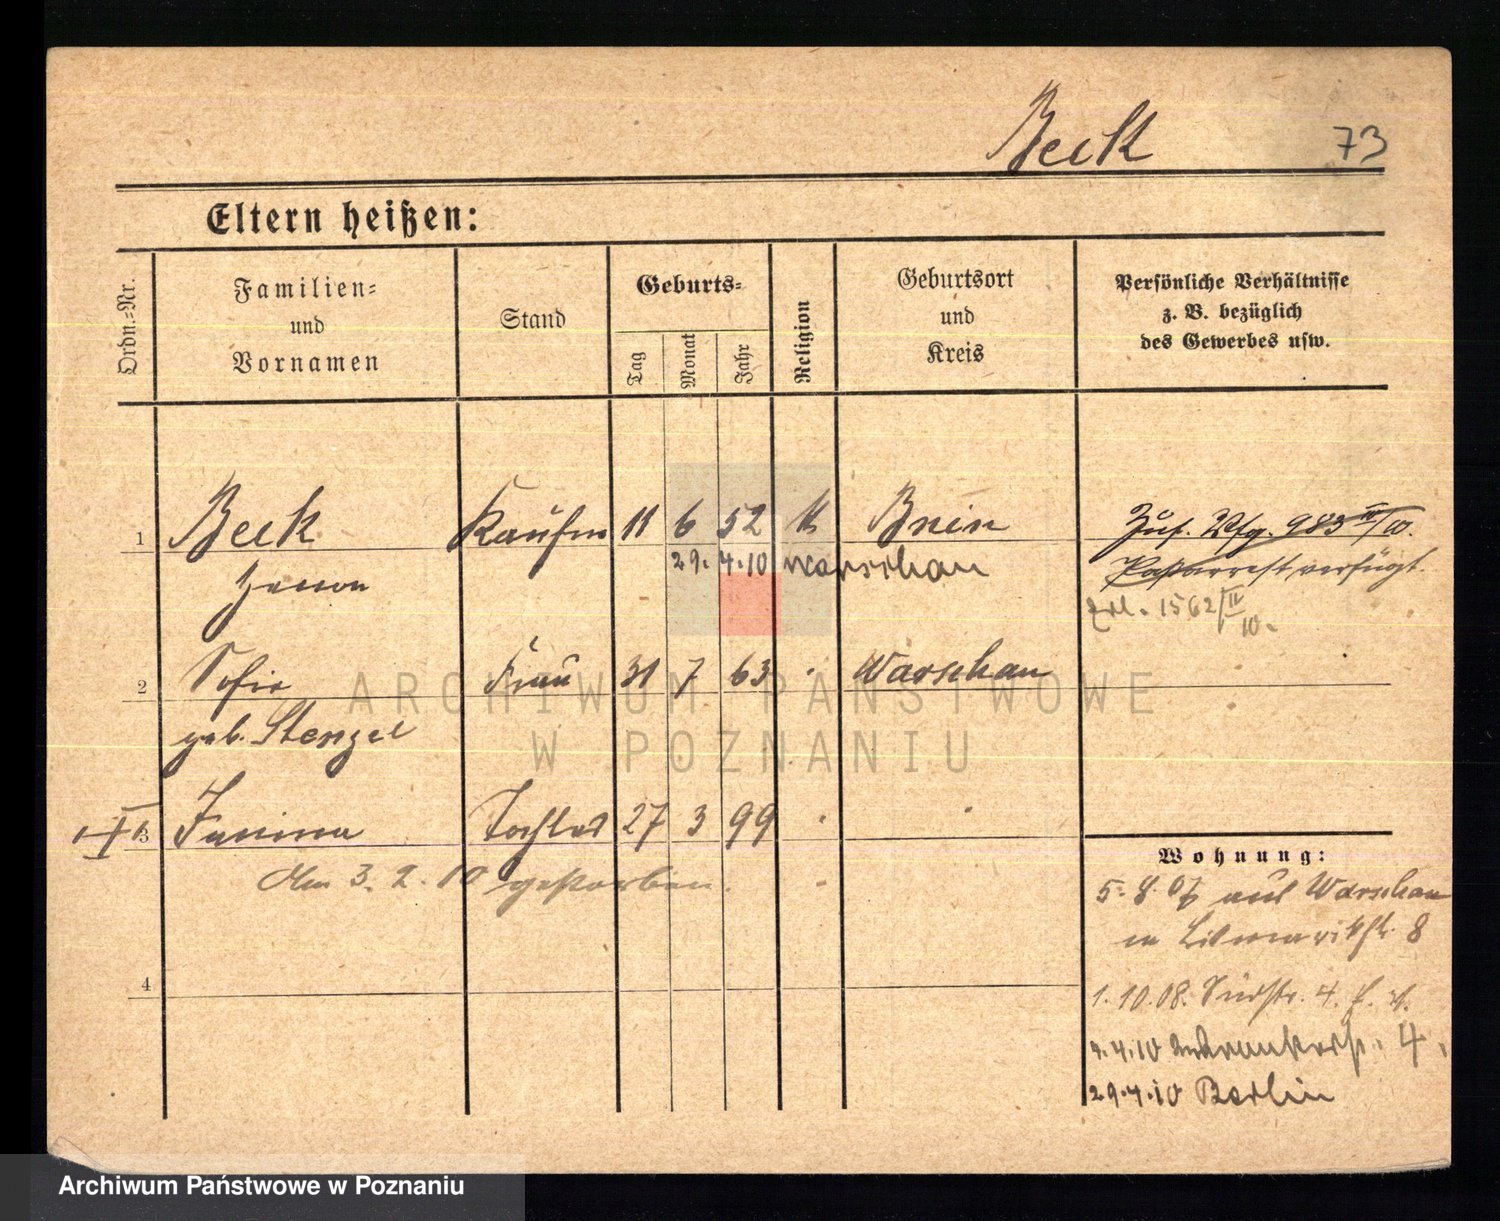 Beck 73
Eltern heißen:
Ordn.-Nr.
Familien- und Vornamen
Stand
Geburts-
Tag
Monat
Jahr
Religion
Geburtsort und Kreis
Persönliche Verhältnisse z. B. bezüglich des Gewerbes usw.
1 Beck Kaufm 11 6 52 k Bnin Zuf. Vfg. 983 IV/10.
29.4.10 Warschau verfügt.
Zenon
Erl. 1562/II 10.
2 Sofie Frau 31 7 63 " Warschau
geb. Stenzel
3 Janina Tochter 27 3 99 " "
Am 3. 2. 10 gestorben.
Wohnung:
5. 8. 07 aus Warschau
Bismarckstr. 8
4
1. 10. 08. Südstr. 4.
4.10 4.
29.4.10 Berlin
ARCHIWUM PAŃSTWOWE
W POZNANIU
Archiwum Państwowe w Poznaniu